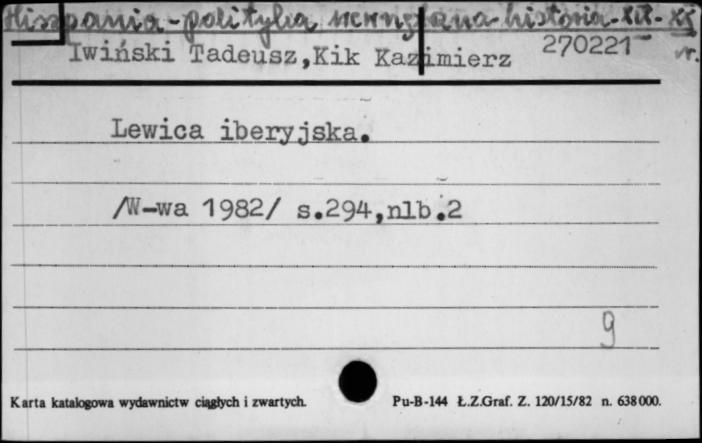 Hiszpania - polityka wewnętrzna historia XIX - XX w.
Iwiński Tadeusz,Kik Kazimierz 270221
Lewica iberyjska.
/W-wa 1982/ s.294,nlb.2
9
Karta katalogowa wydawnictw ciągłych i zwartych. Pu-B-144 Ł.Z.Graf. Z. 120/15/82 n. 638000.